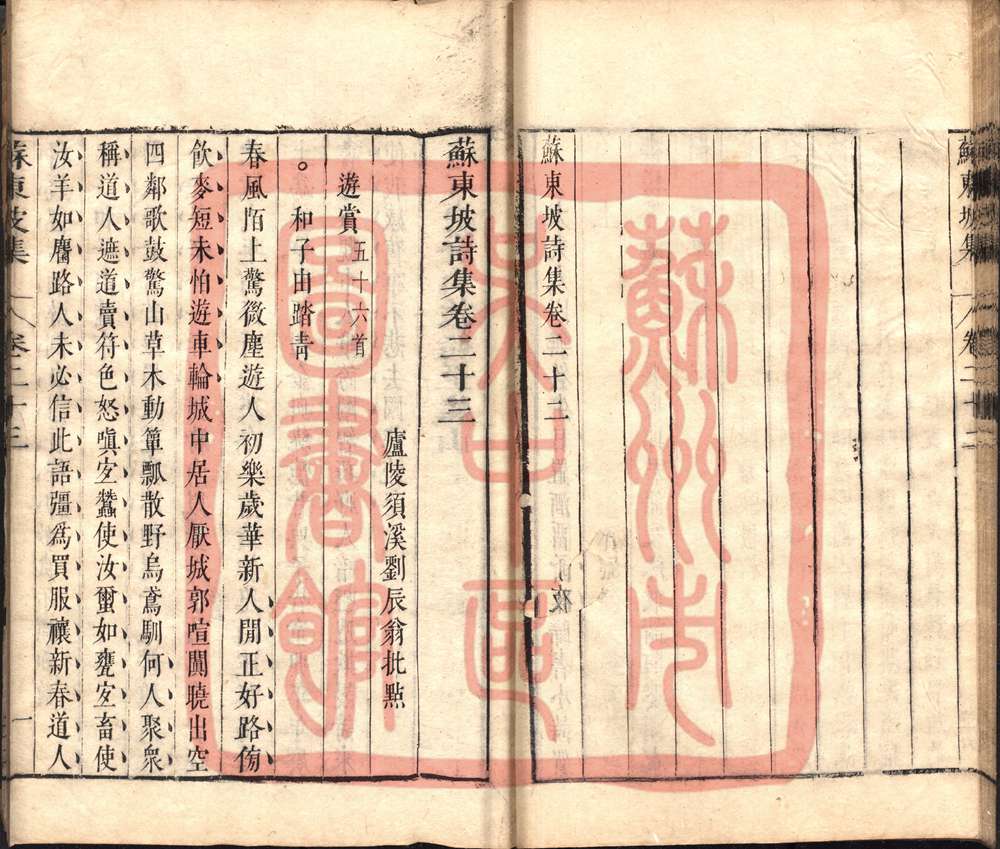 蘇東坡集 卷二十二
蘇東坡詩集卷二十二
蘇東坡詩集卷二十三
廬陵須溪劉辰翁批點
遊賞五十六首
和子由踏青
春風陌上驚微塵遊人初樂歲華新人閒正好路傍
飲麥短未怕遊車輪城中居人厭城郭喧闐曉出空
四鄰歌鼓驚山草木動簞瓢散野烏鳶馴何人聚衆
稱道人遮道賣符色怒嗔宐蠶使汝繭如甕宐畜使
汝羊如麕路人未必信此語彊爲買服禳新春道人
蘇東坡集 卷二十三 一
蘇州市古舊圖書館